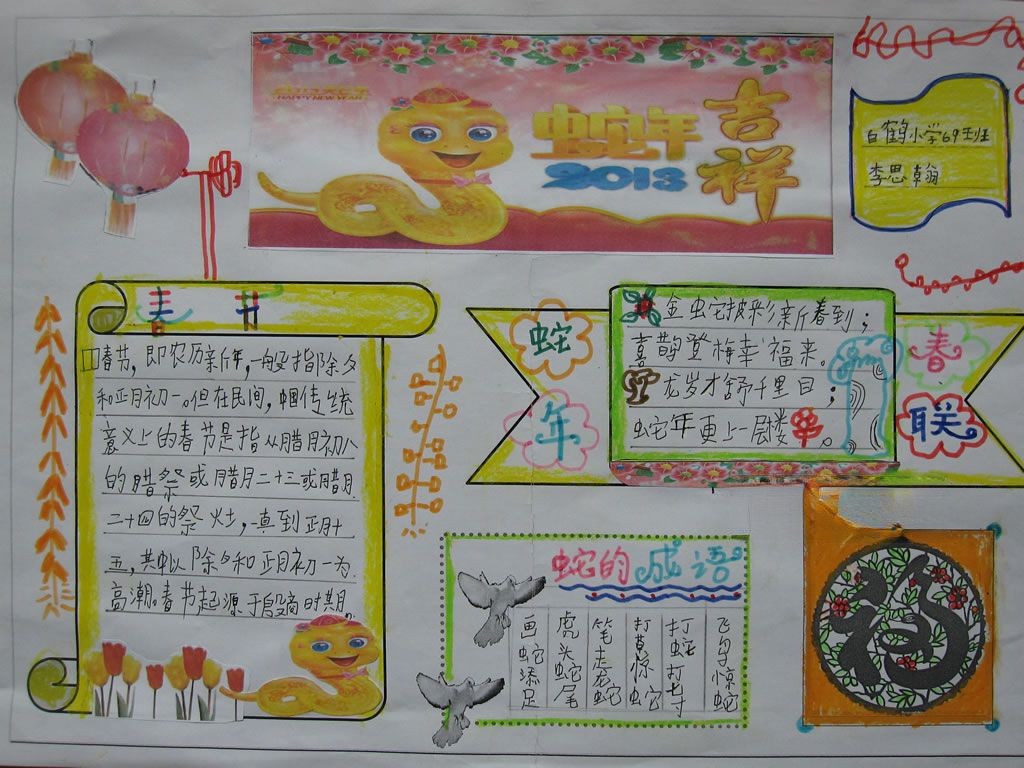 HAPPY NEW YEAR
蛇年
2013
吉祥
白鹤小学69王班
李思翰
春节
春节，即农历新年，一般指除夕
和正月初一。但在民间，中国传统
意义上的春节是指从腊月初八
的腊祭或腊月二十三或腊月
二十四的祭灶，一直到正月十
五，其中以除夕和正月初一为
高潮。春节起源于殷商时期
蛇年
金蛇披彩新春到；
喜鹊登梅幸福来。
龙岁才舒千里目；
蛇年更上一层楼。
春联
蛇的成语
画蛇添足
虎头蛇尾
笔走龙蛇
打草惊蛇
打蛇打七寸
飞鸟惊蛇
福